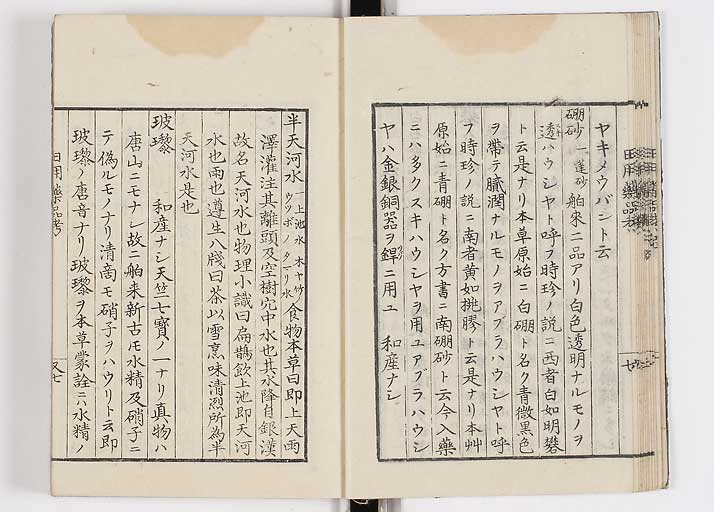 ヤキメウバント云
硼砂 一蓬砂 舶來ニ品アリ白色透明ナルモノヲ
透ハウシヤト呼フ時珍ノ説ニ西者白如明礬
ト云是ナリ本草原始ニ白硼ト名ク青微黒色
ヲ帯テ膩潤ナルモノヲアブラハウシヤト呼
フ時珍ノ説ニ南者黄如桃膠ト云是ナリ本艸
原始ニ青硼ト名ク方書ニ南硼砂ト云今入藥
ニハ多クスキハウシヤヲ用ユアブラハウシ
ヤハ金銀銅器ヲ銲ニ用ユ 和産ナシ
半天河水 一上池水 木ヤ竹ノウツボノタマリ水 食物本草曰即上天雨
澤灌注其離頭及空樹穴中水也其水降自銀漢
故名天河水也物理小識曰扁鵲飲上池即天河
水也雨也遵生八牋曰茶以雪烹味清烈所為半
天河水是也
玻瓈 和産ナシ天竺七寳ノ一ナリ真物ハ
唐山ニモナシ故ニ舶来新古モ水精及硝子ニ
テ偽ルモノナリ清商モ硝子ヲハウリト云即
玻瓈ノ唐音ナリ玻瓈ヲ本草蒙詮ニハ水精ノ
日用藥品考